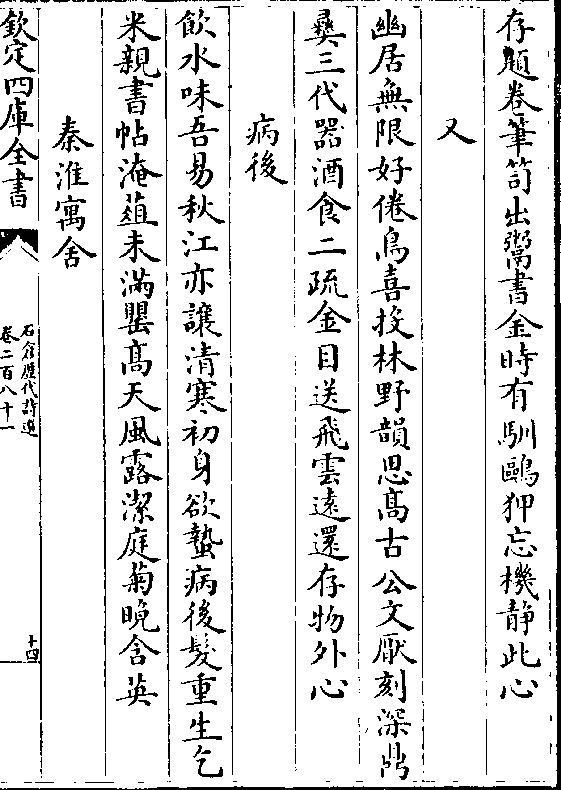 存題卷筆笥出鬻書金時有馴鷗狎忘機靜此心
又
幽居無限好倦鳥喜投林野韻思髙古公文厭刻深鼎
彛三代器酒食二疏金目送飛雲遠還存物外心
病後
飲水味吾易秋江亦讓清寒初身欲蟄病後髮重生乞
米親書帖淹葅未滿罌髙天風露潔庭菊晚含英
秦淮寓舍
欽定四庫全書
石倉歷代詩選
卷二百八十一
十四